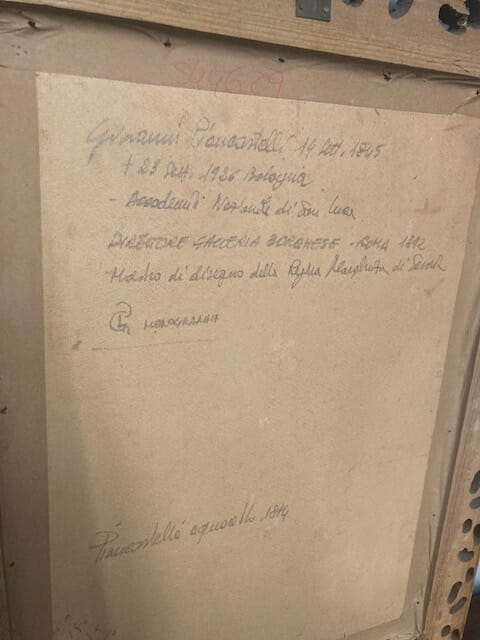 Giovanni Piancastelli 14 Sett. 1845
+ 23 Sett. 1926 Bologna
- Accademia Nazionale di San Luca
DIRETTORE GALLERIA BORGHESE - ROMA 1892
- Maestro di disegno della Regina Margherita di Savoia
MONOGRAMMA
Piancastelli acquarello